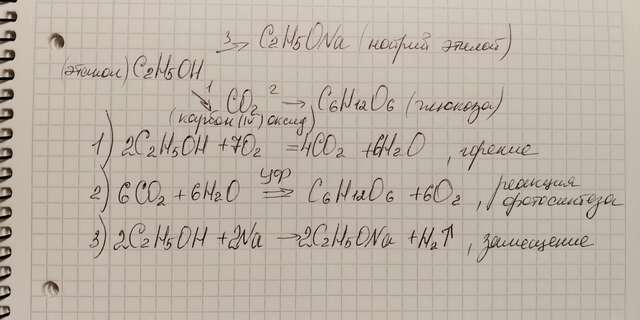 3 → C2H5ONa (натрий этилат)
(этанол) C2H5OH
1 CO2 2 → C6H12O6 (глюкоза)
(карбон (IV) оксид)
1) 2C2H5OH + 7O2 = 4CO2 + 6H2O, горение
2) 6CO2 + 6H2O ⇒ C6H12O6 + 6O2, реакция
фотосинтеза
3) 2C2H5OH + 2Na → 2C2H5ONa + H2↑, замещение